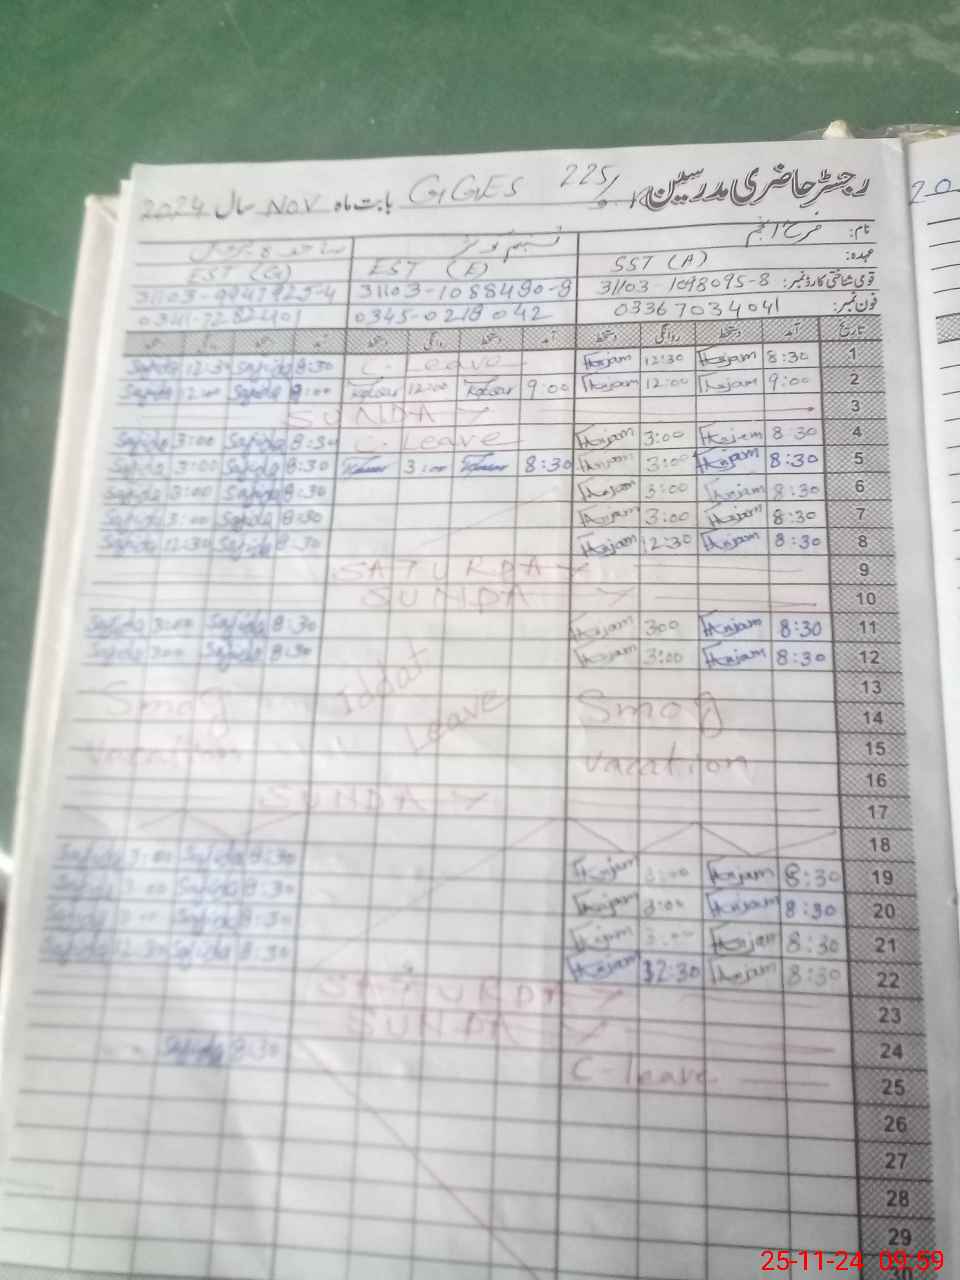 رجسٹر حاضری مدرسین 225/ GGES بابت ماہ Nov سال 2024
نام: فرح انجم
عہدہ: SST (A) EST (E) EST (G)
قومی شناختی کارڈ نمبر: 31103-1098095-8 31103-1088490-8
فون نمبر: 03367034041 0345-0218042
تاریخ آمد دستخط روانگی دستخط آمد دستخط روانگی دستخط
1 8:30 Hanjam 12:30 Hanjam C. Leave 8:30 Sajida 12:30 Sajida
2 9:00 Hanjam 12:00 Hanjam 9:00 Kousar 12:00 Kousar 9:00 Sajida 12:00 Sajida
3 SUNDAY
4 8:30 Hanjam 3:00 Hanjam C. Leave 8:30 Sajida 3:00 Sajida
5 8:30 Hanjam 3:00 Hanjam 8:30 Kousar 3:00 Kousar 8:30 Sajida 3:00 Sajida
6 8:30 Hanjam 3:00 Hanjam 8:30 Sajida 3:00 Sajida
7 8:30 Hanjam 3:00 Hanjam 8:30 Sajida 3:00 Sajida
8 8:30 Hanjam 12:30 Hanjam 8:30 Sajida 12:30 Sajida
9 SATURDAY
10 SUNDAY
11 8:30 Hanjam 300 Hanjam 8:30 Sajida 3:00 Sajida
12 8:30 Hanjam 3:00 Hanjam 8:30 Sajida 3:00 Sajida
13
14 Smog Iddat Smog
15 vacation Leave vacation
16
17 SUNDAY
18
19 8:30 Hanjam 3:00 Hanjam 8:30 Sajida 3:00 Sajida
20 8:30 Hanjam 3:00 Hanjam 8:30 Sajida 3:00 Sajida
21 8:30 Hanjam 3:00 Hanjam 8:30 Sajida 3:00 Sajida
22 8:30 Hanjam 12:30 Hanjam 8:30 Sajida 12:30 Sajida
23 SATURDAY
24 SUNDAY
25 C-leave 8:30 Sajida
26
27
28
29
20
25-11-24 09:59